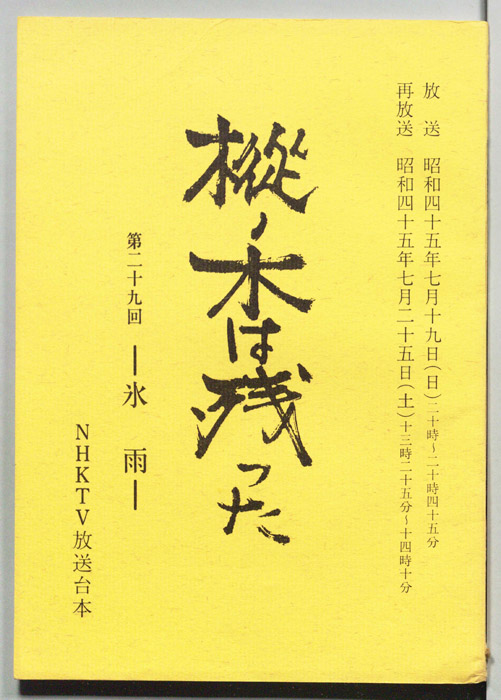 放　送　昭和四十五年七月十九日(日)二十時〜二十時四十五分
再放送　昭和四十五年七月二十五日(土)十三時二十五分〜十四時十分
樅ノ木は残った
第二十九回　―氷　雨―
NHKTV放送台本